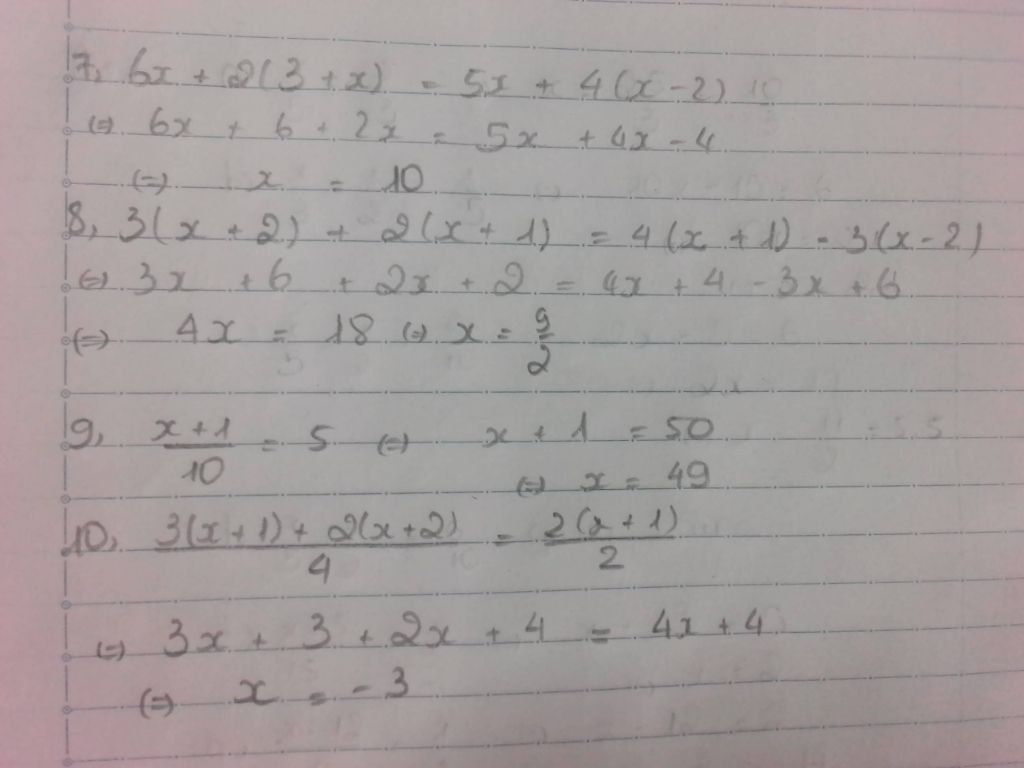 7, 6x + 2(3 + x) = 5x + 4(x - 2)
(=) 6x + 6 + 2x = 5x + 4x - 4
(=) x = 10
8, 3(x + 2) + 2(x + 1) = 4(x + 1) - 3(x - 2)
(=) 3x + 6 + 2x + 2 = 4x + 4 - 3x + 6
(=) 4x = 18 (=) x = 9/2
9, (x + 1)/10 = 5 (=) x + 1 = 50
(=) x = 49
10, (3(x + 1) + 2(x + 2))/4 = (2(x + 1))/2
(=) 3x + 3 + 2x + 4 = 4x + 4
(=) x = - 3